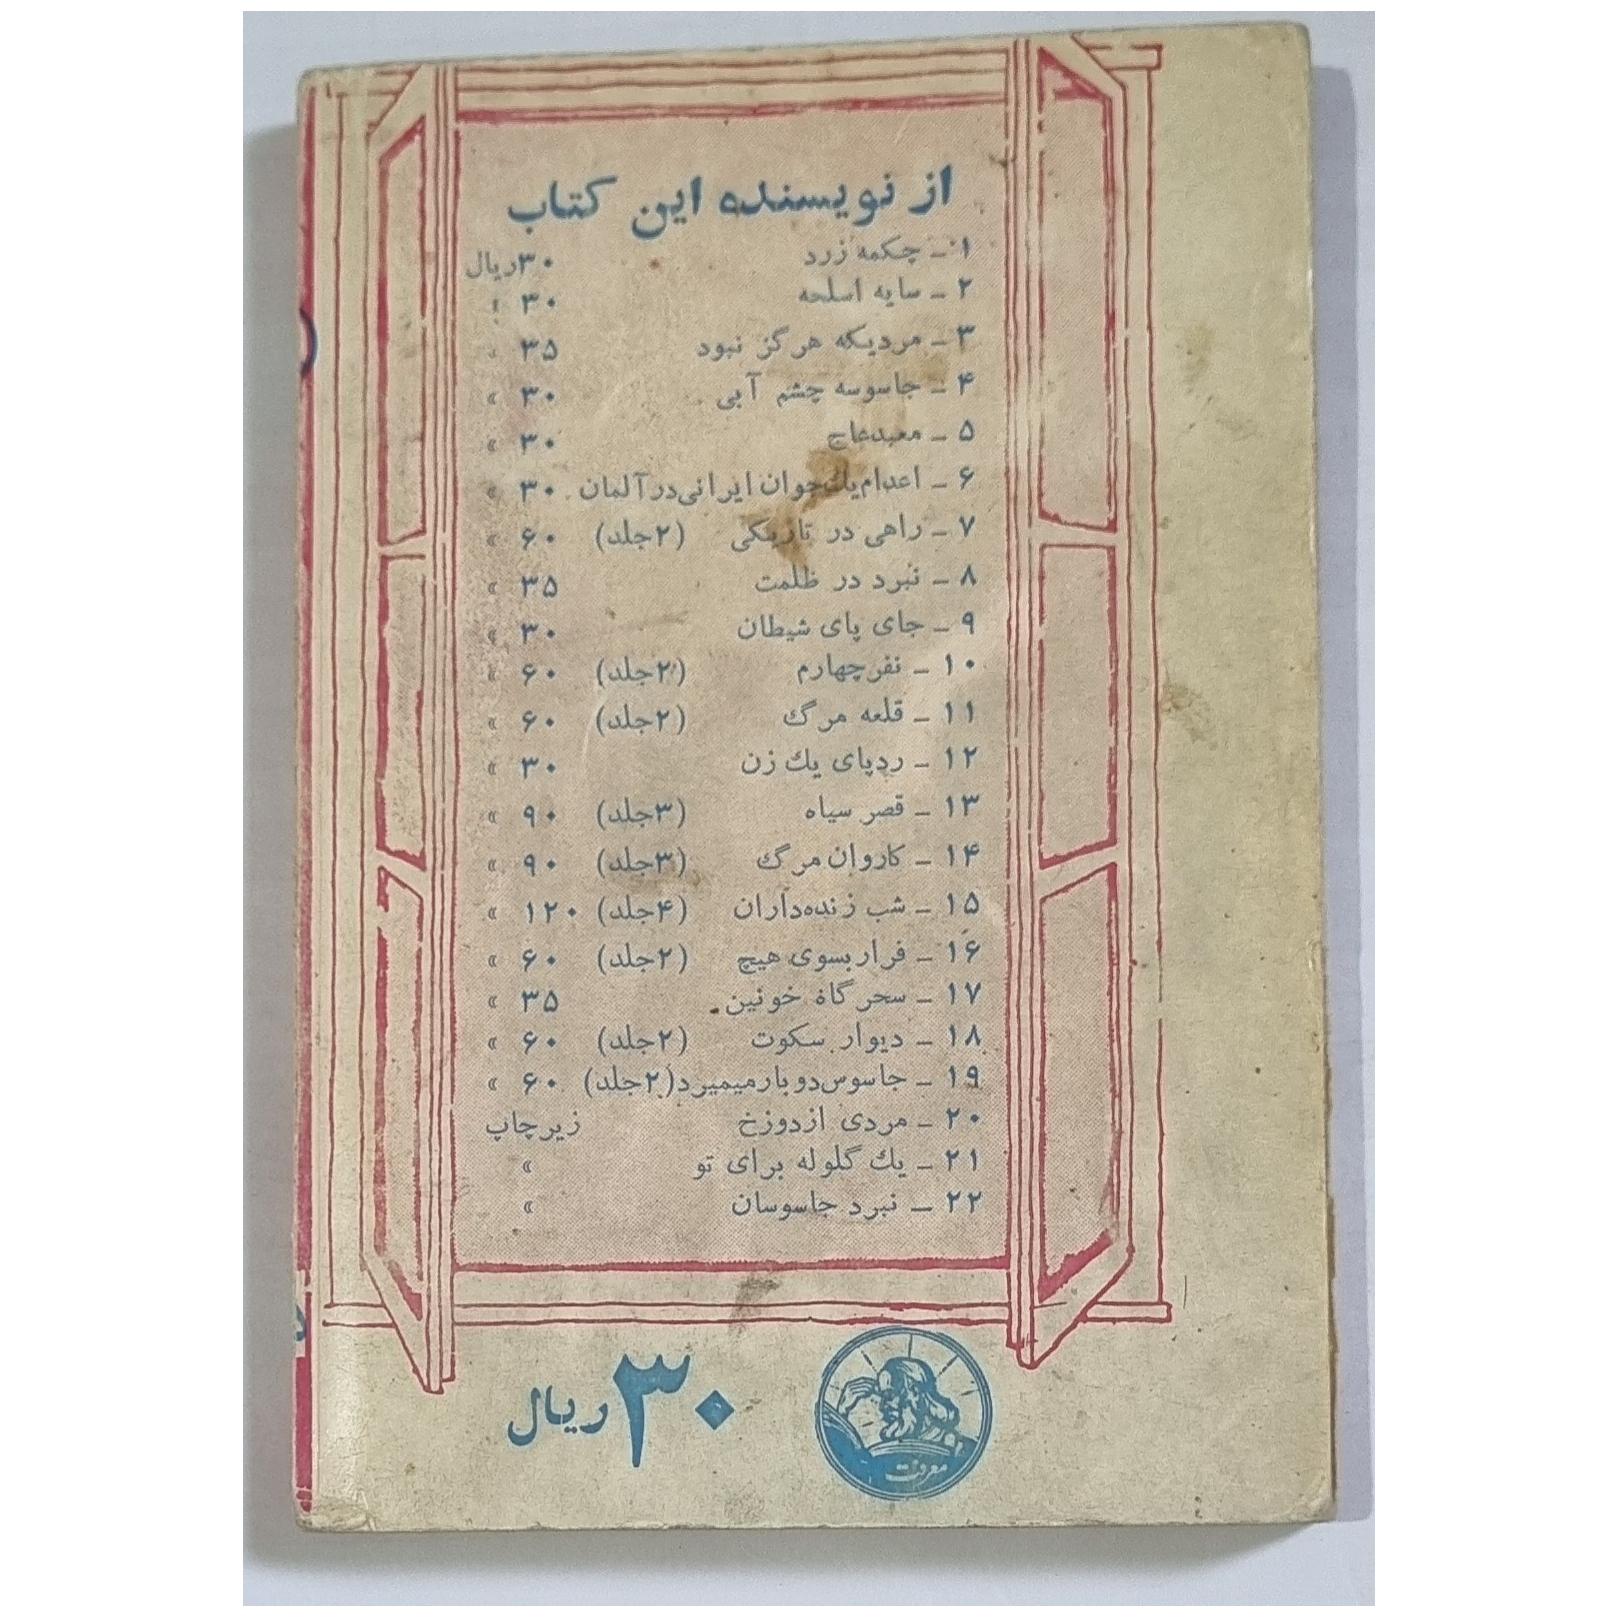 از نویسنده این کتاب
۱ – چکمه زرد ۳۰ ریال
۲ – سایه اسلحه ۳۰ »
۳ – مردیکه هرگز نبود ۳۵ »
۴ – جاسوسه چشم آبی ۳۰ »
۵ – معبدعاج ۳۰ »
۶ – اعدام یك جوان ایرانی در آلمان ۳۰ »
۷ – راهی در تاریکی (۲جلد) ۶۰ »
۸ – نبرد در ظلمت ۳۵ »
۹ – جای پای شیطان ۳۰ »
۱۰ – نفرچهارم (۲جلد) ۶۰ »
۱۱ – قلعه مرگ (۲جلد) ۶۰ »
۱۲ – ردپای یك زن ۳۰ »
۱۳ – قصر سیاه (۳جلد) ۹۰ »
۱۴ – کاروان مرگ (۳جلد) ۹۰ »
۱۵ – شب زنده‌داران (۴جلد) ۱۲۰ »
۱۶ – فرار بسوی هیچ (۲جلد) ۶۰ »
۱۷ – سحرگاه خونین ۳۵ »
۱۸ – دیوار سکوت (۲جلد) ۶۰ »
۱۹ – جاسوس دوبار میمیرد (۲جلد) ۶۰ »
۲۰ – مردی ازدوزخ زیرچاپ
۲۱ – یك گلوله برای تو »
۲۲ – نبرد جاسوسان »
۳۰ ریال
معرفت